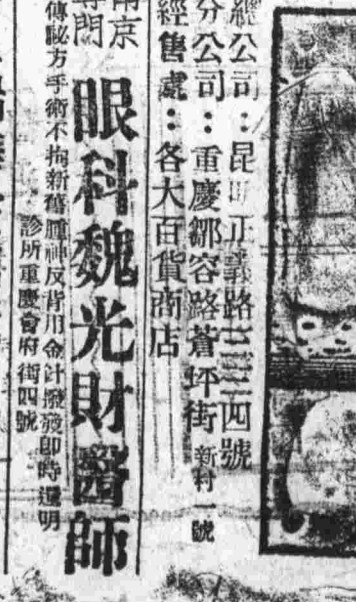 總公司：昆明正義路三三四號
分公司：重慶鄒容路蒼坪街新村一號
經售處：各大百貨商店
南京
專門
眼科魏光財醫師
傳祕方手術不拘新舊瞳神反背用金針撥發即時還明
診所重慶會府街四號